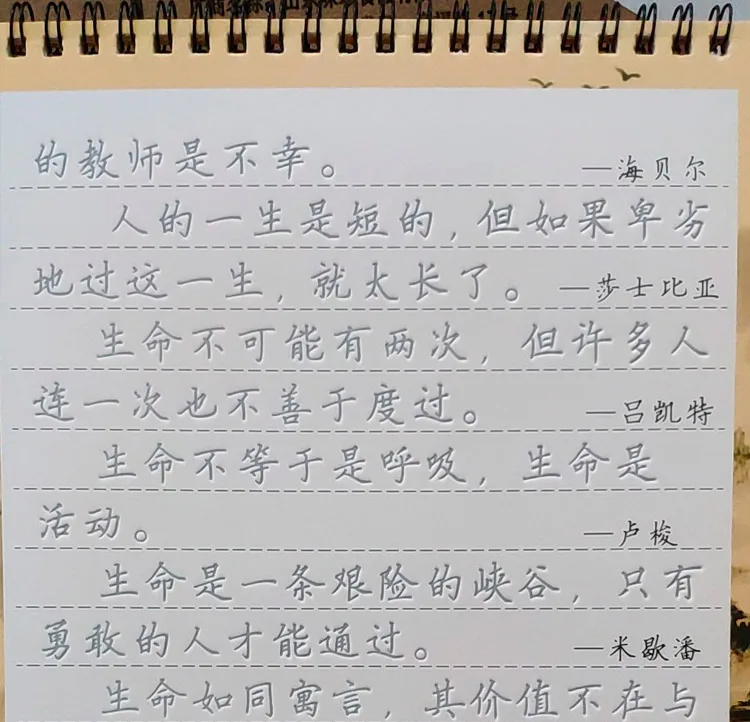 的教师是不幸。 —海贝尔
人的一生是短的，但如果卑劣
地过这一生，就太长了。 —莎士比亚
生命不可能有两次，但许多人
连一次也不善于度过。 —吕凯特
生命不等于是呼吸，生命是
活动。 —卢梭
生命是一条艰险的峡谷，只有
勇敢的人才能通过。 —米歇潘
生命如同寓言，其价值不在与